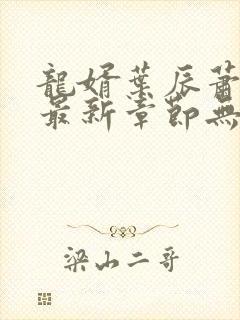 龍婿葉辰蕭
最新章節無
梁山二哥